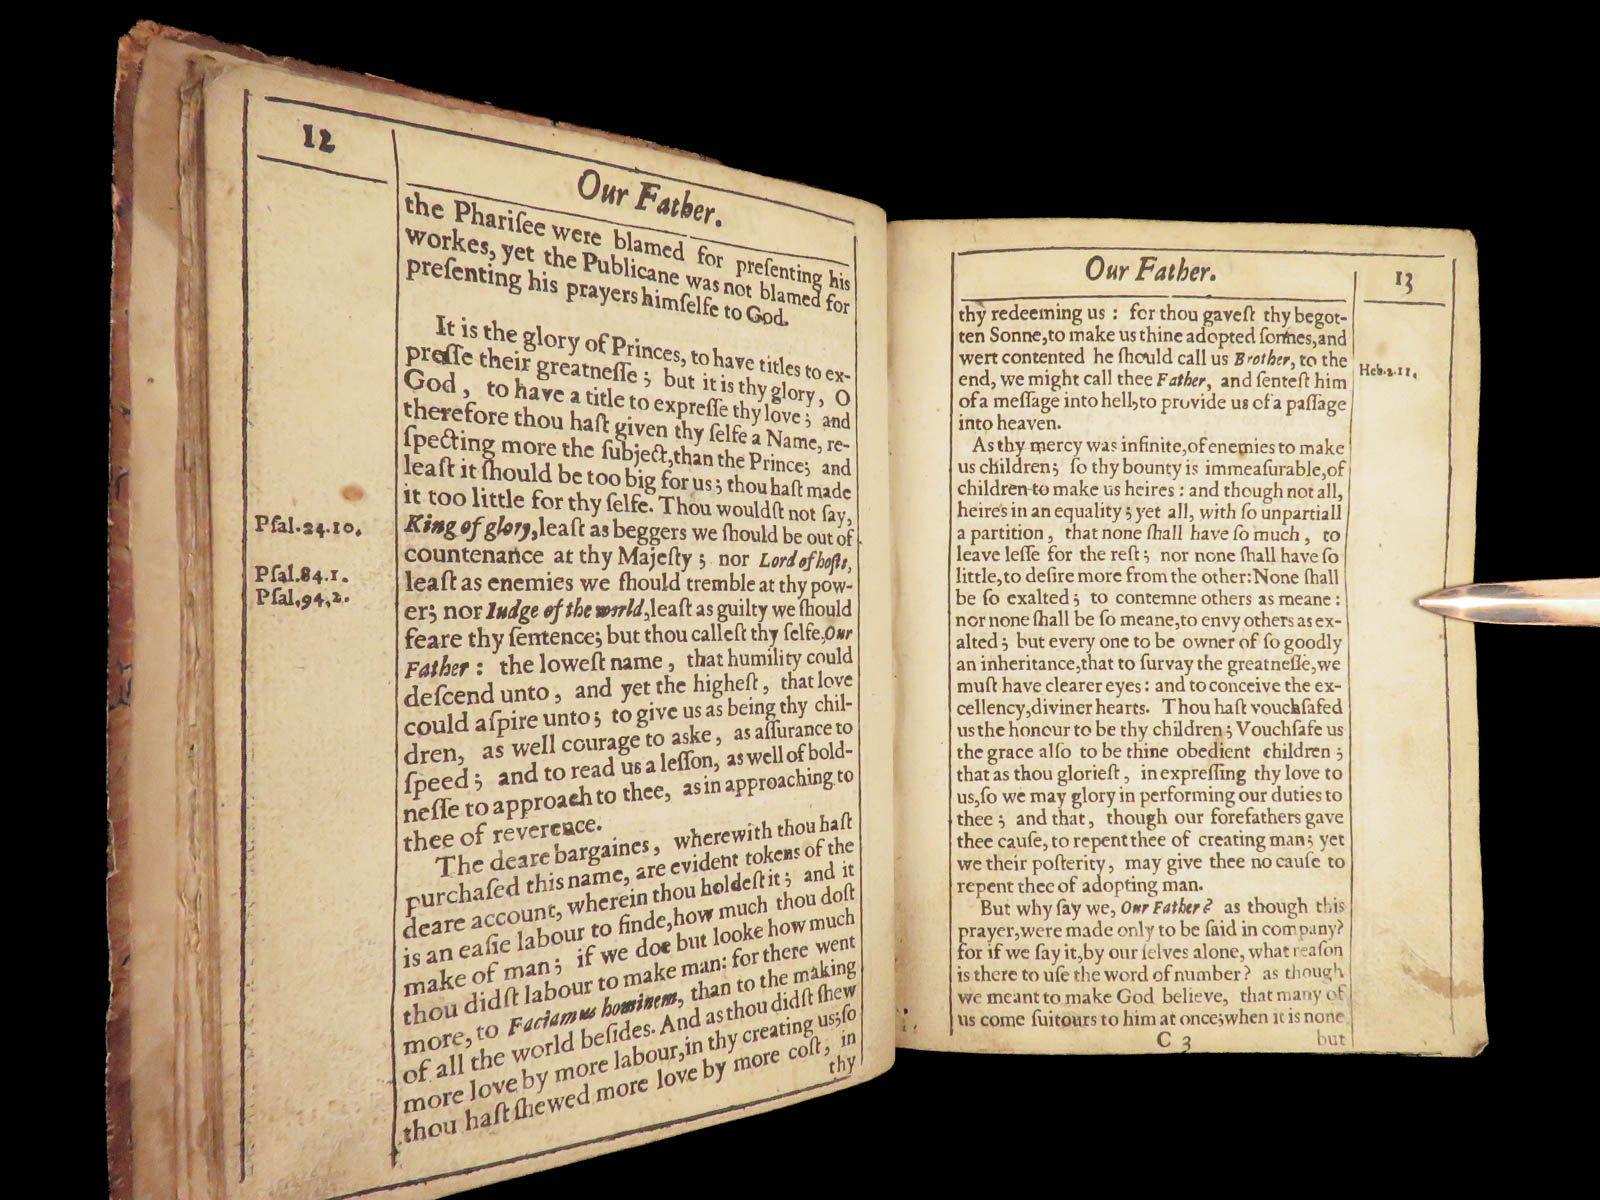 12
Our Father.
the Phariſee were blamed for preſenting his
workes, yet the Publicane was not blamed for
preſenting his prayers himſelfe to God.
It is the glory of Princes, to have titles to ex-
preſſe their greatneſſe; but it is thy glory, O
God, to have a title to expreſſe thy love; and
therefore thou haſt given thy ſelfe a Name, re-
ſpecting more the ſubject, than the Prince; and
leaſt it ſhould be too big for us; thou haſt made
it too little for thy ſelfe. Thou wouldſt not ſay,
Pſal.24.10.
King of glory, leaſt as beggers we ſhould be out of
countenance at thy Majeſty; nor Lord of hoſts,
Pſal.84.1.
leaſt as enemies we ſhould tremble at thy pow-
Pſal.94.2.
er; nor Iudge of the world, leaſt as guilty we ſhould
feare thy ſentence; but thou calleſt thy ſelfe, Our
Father: the loweſt name, that humility could
deſcend unto, and yet the higheſt, that love
could aſpire unto; to give us as being thy chil-
dren, as well courage to aske, as aſſurance to
ſpeed; and to read us a leſſon, as well of bold-
neſſe to approach to thee, as in approaching to
thee of reverence.
The deare bargaines, wherewith thou haſt
purchaſed this name, are evident tokens of the
deare account, wherein thou holdeſt it; and it
is an eaſie labour to finde, how much thou doſt
make of man; if we doe but looke how much
thou didſt labour to make man: for there went
more, to Faciamus hominem, than to the making
of all the world beſides. And as thou didſt ſhew
more love by more labour, in thy creating us; ſo
thou haſt ſhewed more love by more coſt, in
thy
Our Father.
13
thy redeeming us: for thou gaveſt thy begot-
ten Sonne, to make us thine adopted ſonnes, and
wert contented he ſhould call us Brother, to the
Heb.2.11.
end, we might call thee Father, and ſenteſt him
of a meſſage into hell, to provide us of a paſſage
into heaven.
As thy mercy was infinite, of enemies to make
us children; ſo thy bounty is immeaſurable, of
children to make us heires: and though not all,
heires in an equality; yet all, with ſo unpartiall
a partition, that none ſhall have ſo much, to
leave leſſe for the reſt; nor none ſhall have ſo
little, to deſire more from the other: None ſhall
be ſo exalted; to contemne others as meane:
nor none ſhall be ſo meane, to envy others as ex-
alted; but every one to be owner of ſo goodly
an inheritance, that to ſurvay the greatneſſe, we
muſt have clearer eyes: and to conceive the ex-
cellency, diviner hearts. Thou haſt vouchſafed
us the honour to be thy children; Vouchſafe us
the grace alſo to be thine obedient children;
that as thou glorieſt, in expreſſing thy love to
us, ſo we may glory in performing our duties to
thee; and that, though our forefathers gave
thee cauſe, to repent thee of creating man; yet
we their poſterity, may give thee no cauſe to
repent thee of adopting man.
But why ſay we, Our Father? as though this
prayer, were made only to be ſaid in company?
for if we ſay it, by our ſelves alone, what reaſon
is there to uſe the word of number? as though
we meant to make God believe, that many of
us come ſuitours to him at once; when it is none
C 3
but